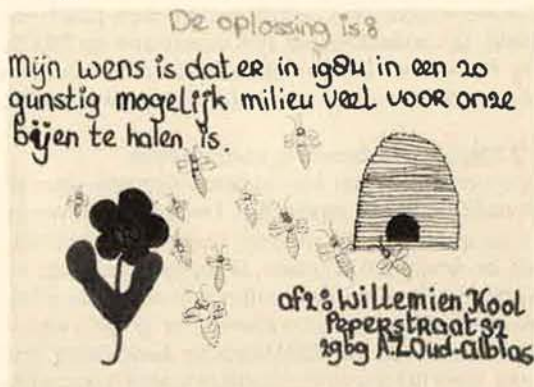 De oplossing is:
Mijn wens is dat er in 1984 in een zo
gunstig mogelijk milieu veel voor onze
bijen te halen is.
afz: Willemien Kool
Peperstraat 32
2969 A.Z Oud-Alblas